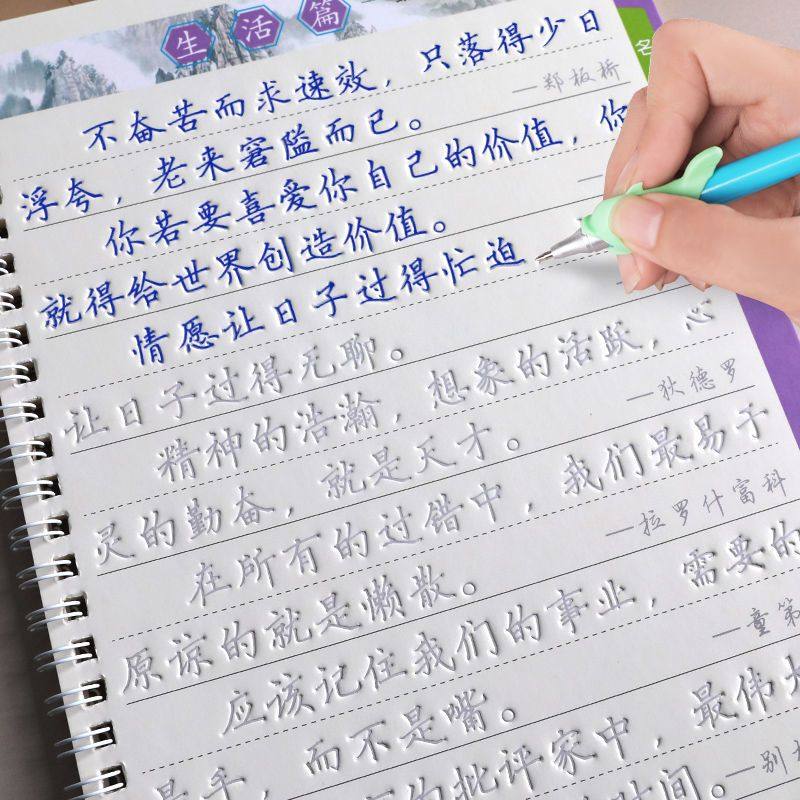 生活篇
名
不奋苦而求速效，只落得少日
浮夸，老来窘隘而已。
—郑板桥
你若要喜爱你自己的价值，你
就得给世界创造价值。
情愿让日子过得忙迫
让日子过得无聊。
精神的浩瀚，想象的活跃，心
灵的勤奋，就是天才。
—狄德罗
在所有的过错中，我们最易于
原谅的就是懒散。
—拉罗什富科
应该记住我们的事业，需要的
是手，而不是嘴。
—童第
的批评家中，最伟大
时间。
—别林